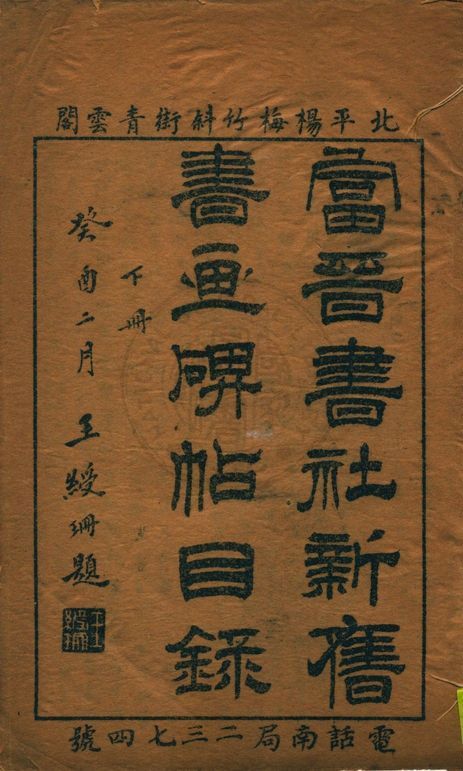 北平楊梅竹斜街青雲閣
富晉書社新舊
書画碑帖目錄
下冊
癸酉二月 王綬珊題
電話南局二三七四號